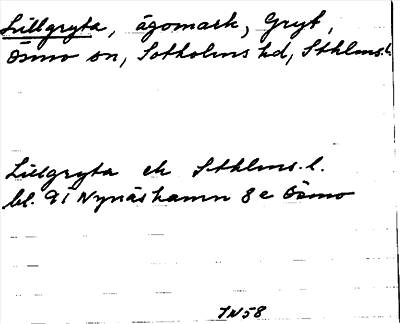 Lillgryta, ägomark, Gryt,
Ösmo sn, Sotholms hd, Sthlms. l.
Lillgryta ek Sthlms. l.
bl. 91 Nynäshamn 8 e Ösmo
IN58